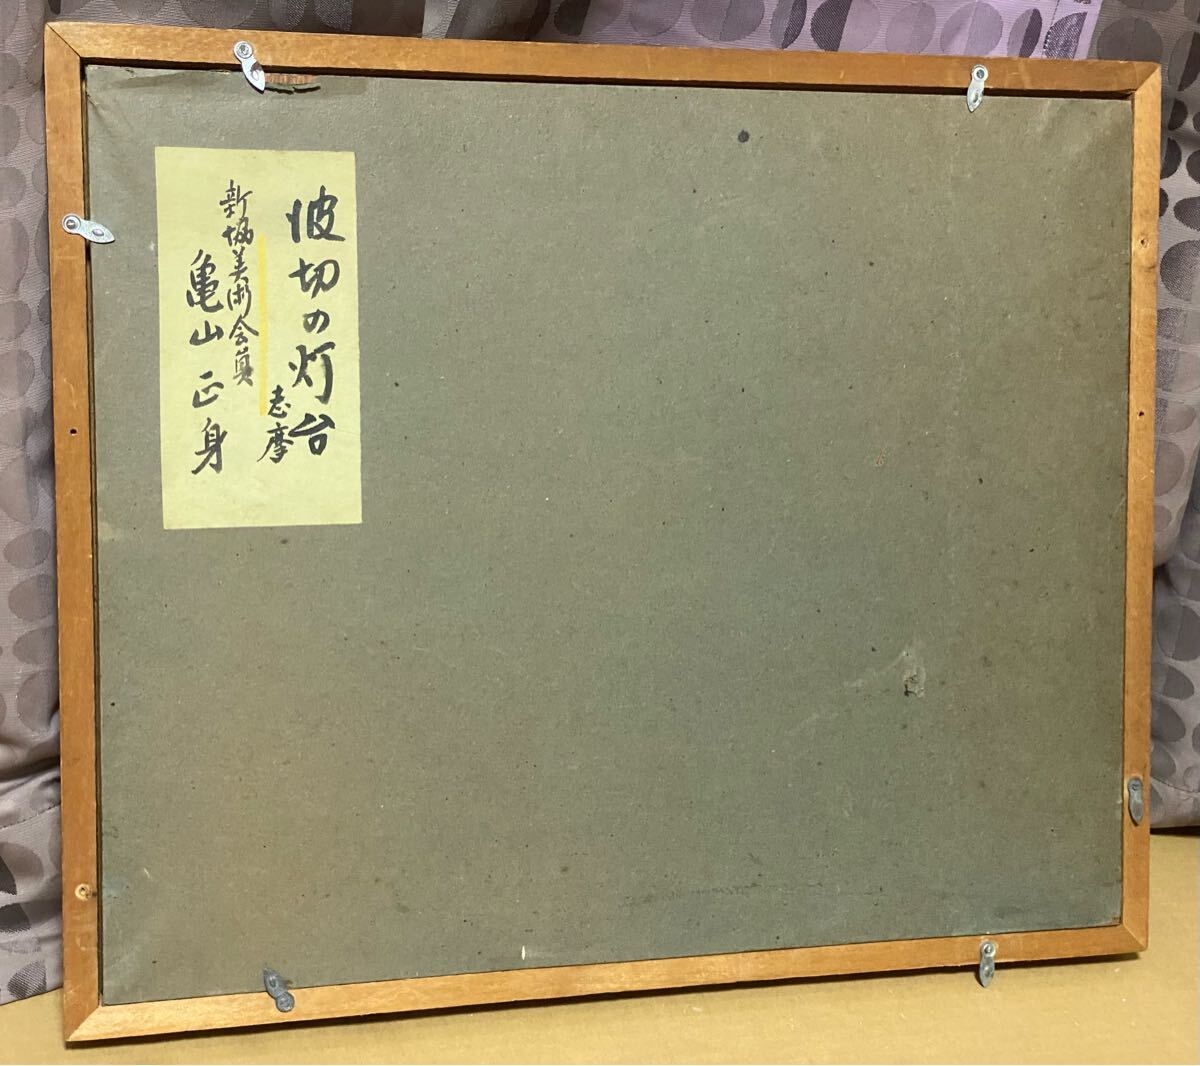 波切の灯台
志摩
新協美術会員
亀山正身